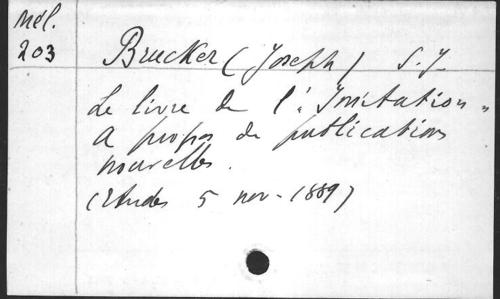 Mél.
203
Brucker (Joseph) S. J.
Le livre de l'"Imitation"
A propos de publications
nouvelles.
(Etudes 5 nov. 1889)